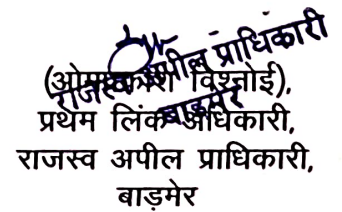 राजस्व अपील प्राधिकारी
बाड़मेर
(ओमप्रकाश विश्नोई),
प्रथम लिंक अधिकारी,
राजस्व अपील प्राधिकारी,
बाड़मेर